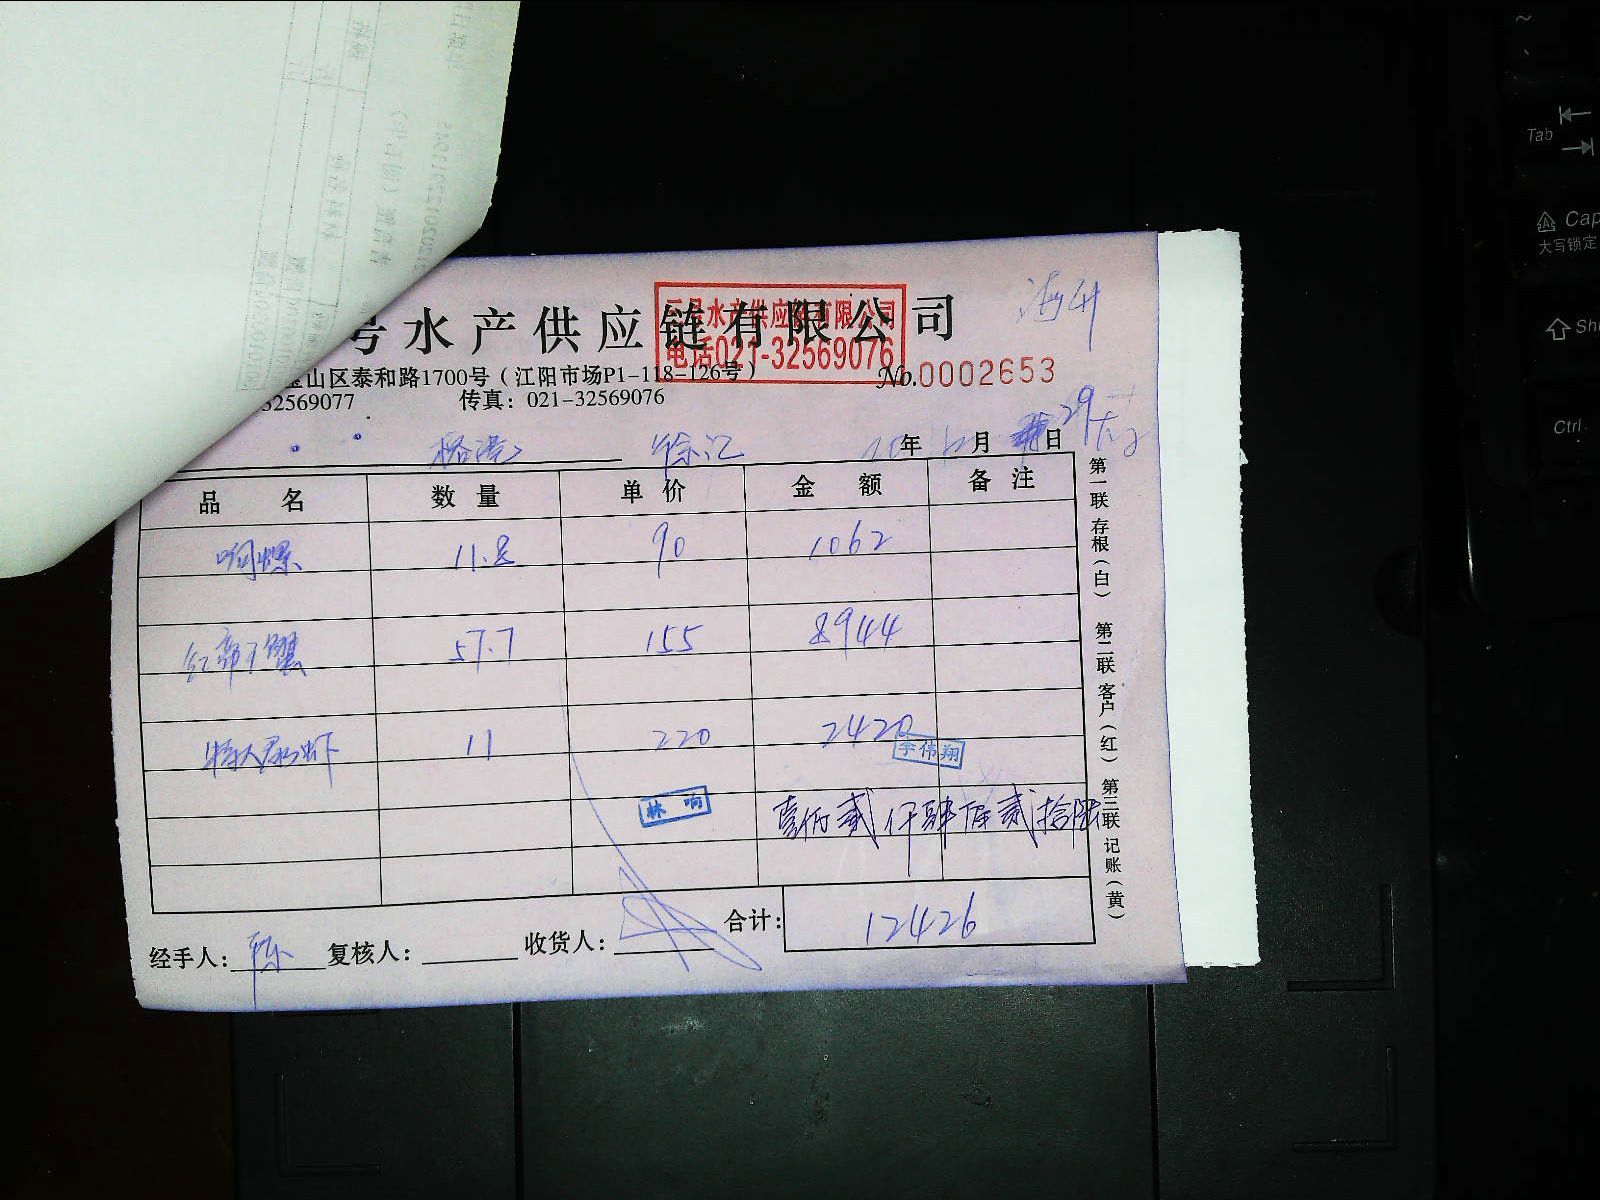 海升
号水产供应链有限公司
三号水产供应链有限公司
电话021-32569076
宝山区泰和路1700号（江阳市场P1-118-126号）
No.0002653
32569077 传真：021-32569076
徐汇 年12月29日
品名 数量 单价 金额 备注
响螺 11.8 90 1062
红帝王蟹 57.7 155 8944
11 220 2420
李伟翔
林响
壹万贰仟肆佰贰拾陆
合计： 12426
经手人：陈 复核人： 收货人：
第一联存根（白） 第二联客户（红） 第三联记账（黄）
Tab
Cap
大写锁定
Sh
Ctrl